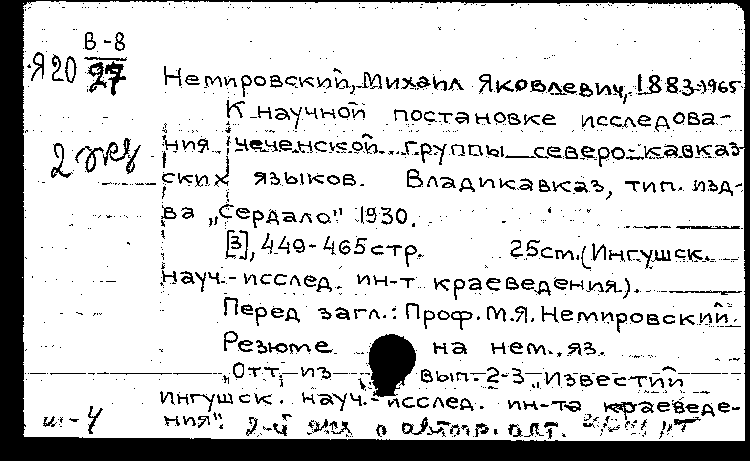 В-8
Я20 27
Немировский, Михаил Яковлевич, 1883-1965
К научной постановке исследова-
2 экз
ния чеченской группы северо-кавказ
ских языков. Владикавказ, тип. изд-
ва „Сердало" 1930.
[3], 449-465 стр. 25 cm. (Ингушск.
науч.-исслед. ин-т краеведения).
Перед загл.: Проф. М.Я. Немировский.
Резюме на нем. яз.
„Отт. из вып. 2-3 „Известий
Ингушск. науч.-исслед. ин-та краеведе-
ния".
2-й экз с автогр. авт.
ш-4